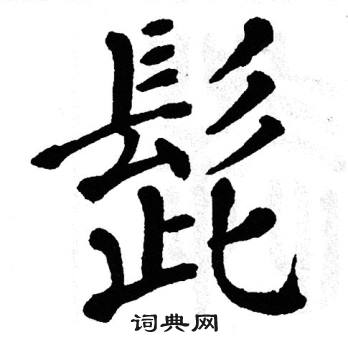 髭
词典网